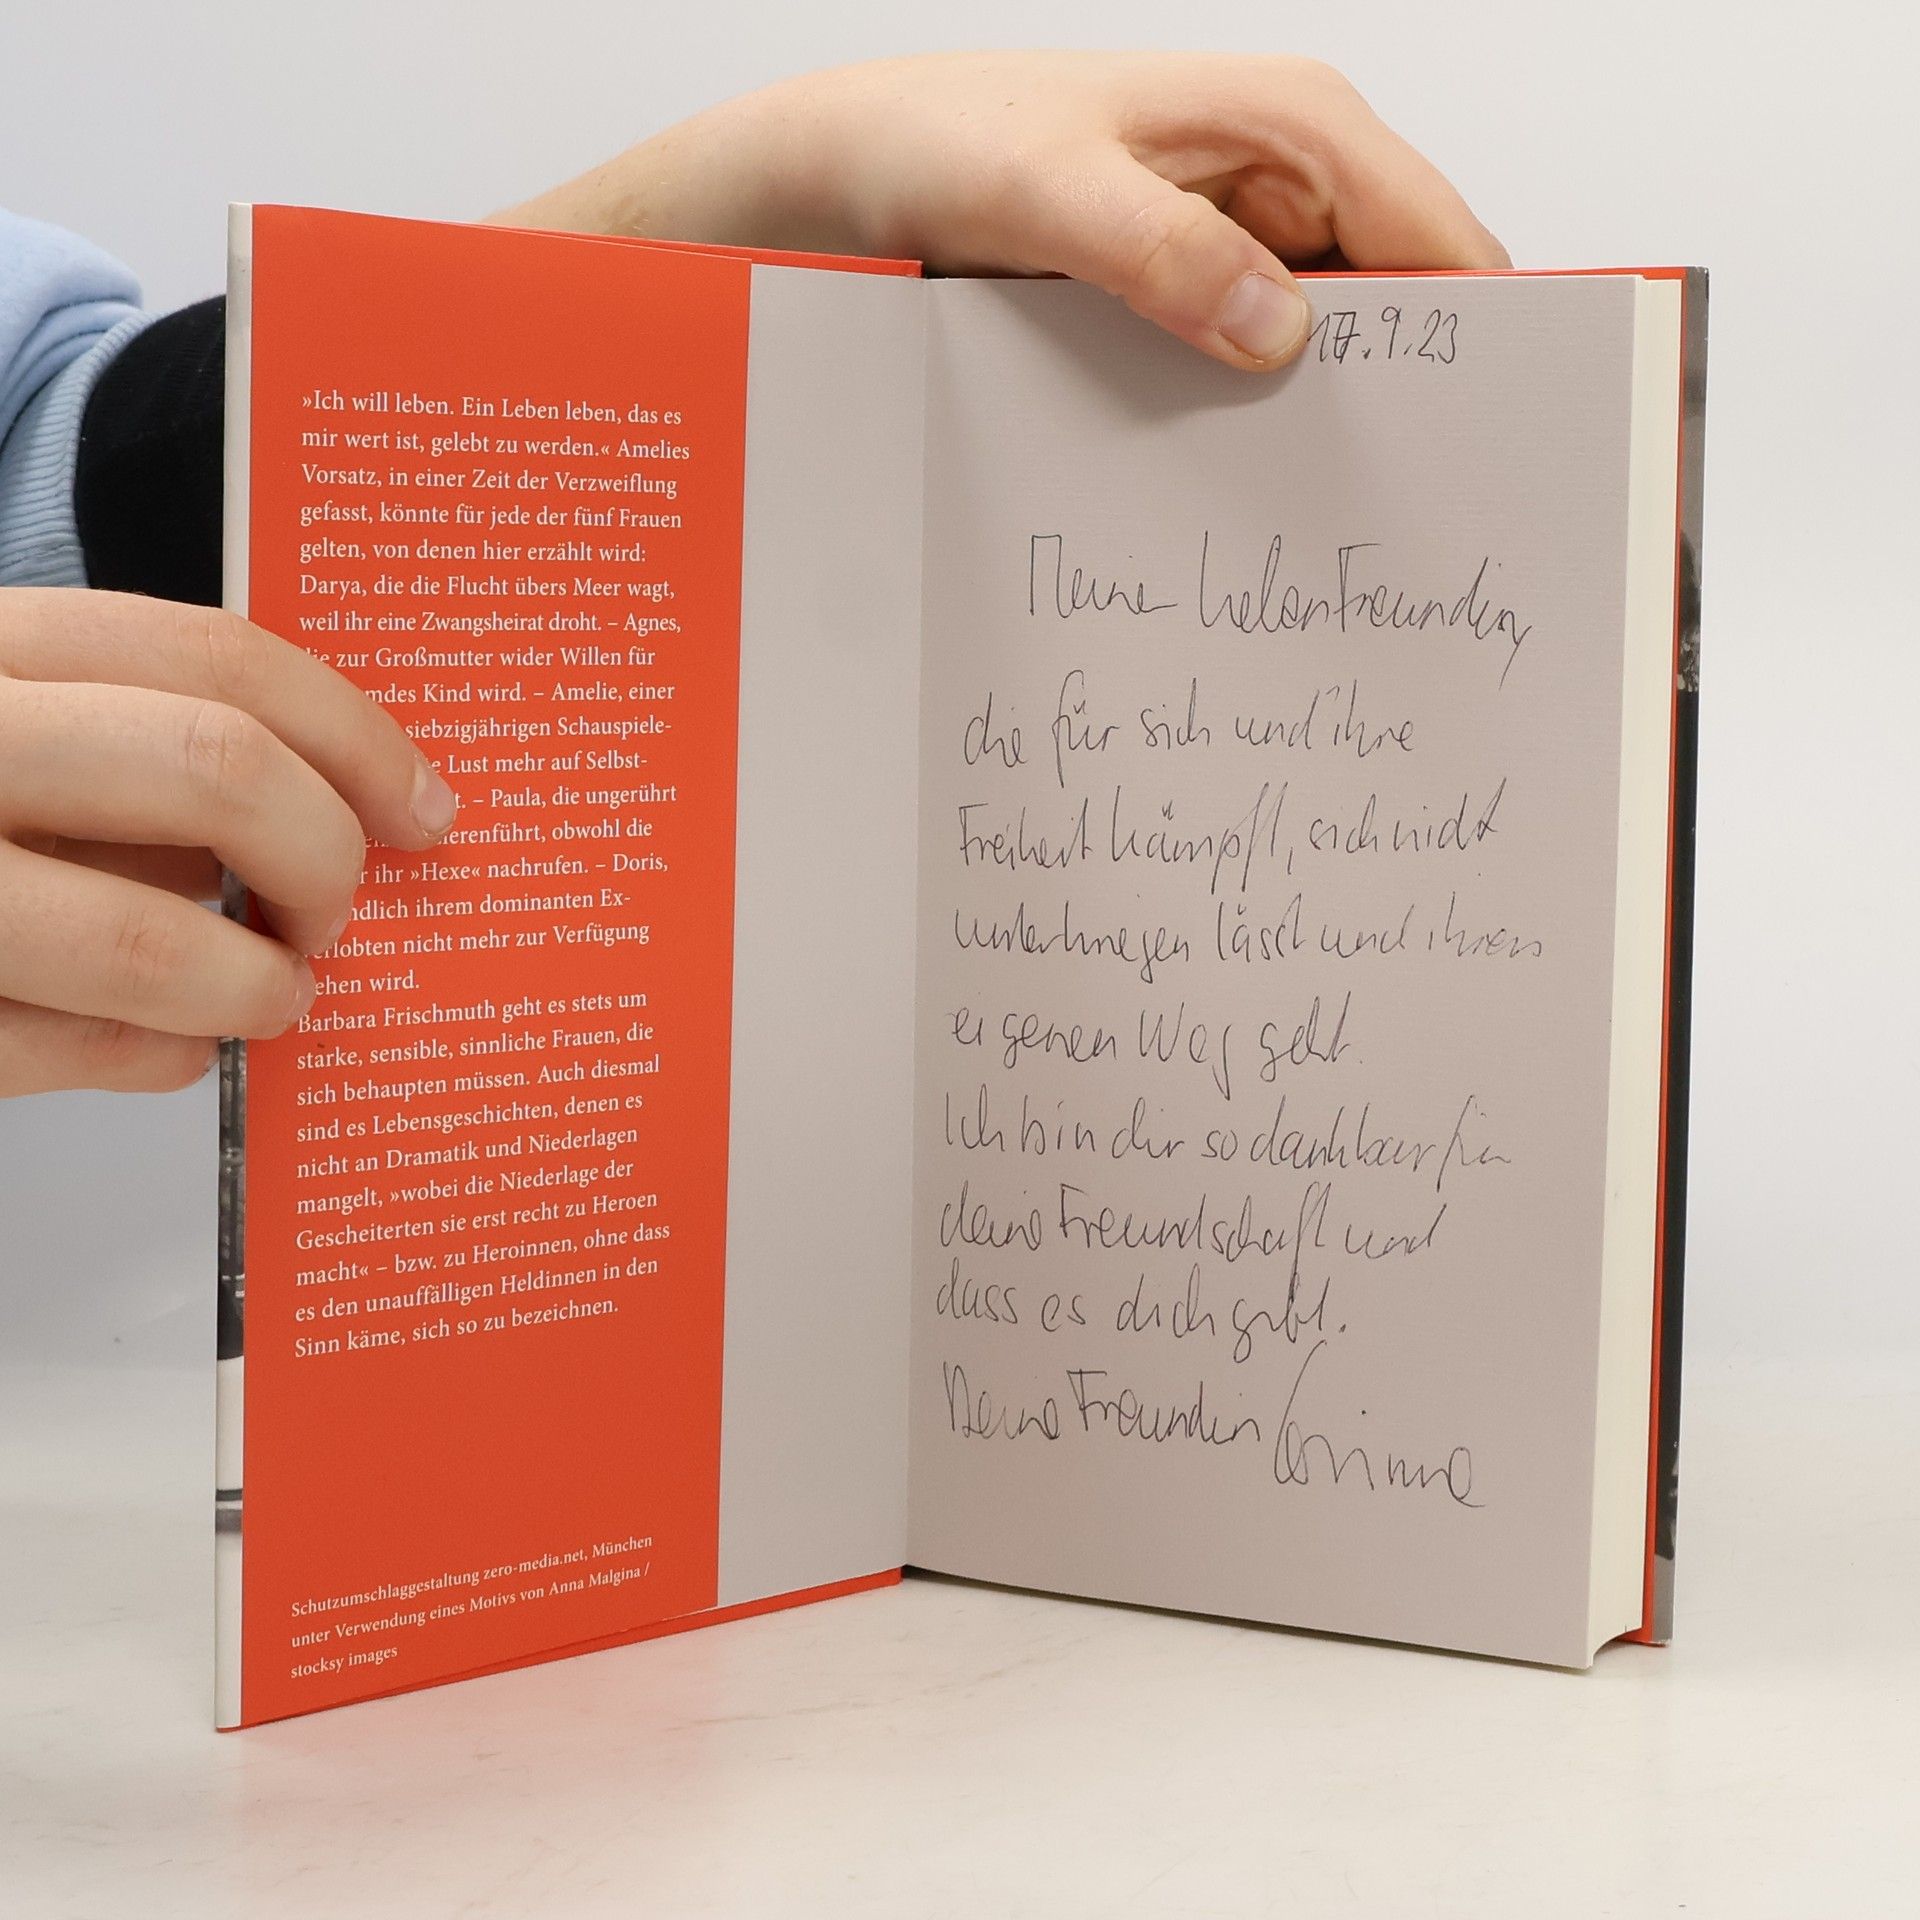 »Ich will leben. Ein Leben leben, das es
mir wert ist, gelebt zu werden.« Amelies
Vorsatz, in einer Zeit der Verzweiflung
gefasst, könnte für jede der fünf Frauen
gelten, von denen hier erzählt wird:
Darya, die die Flucht übers Meer wagt,
weil ihr eine Zwangsheirat droht. – Agnes,
zur Großmutter wider Willen für
Kind wird. – Amelie, einer
siebzigjährigen Schauspiele-
Lust mehr auf Selbst-
– Paula, die ungerührt
obwohl die
ihr »Hexe« nachrufen. – Doris,
ihrem dominanten Ex-
nicht mehr zur Verfügung
wird.
Barbara Frischmuth geht es stets um
starke, sensible, sinnliche Frauen, die
sich behaupten müssen. Auch diesmal
sind es Lebensgeschichten, denen es
nicht an Dramatik und Niederlagen
mangelt, »wobei die Niederlage der
Gescheiterten sie erst recht zu Heroen
macht« – bzw. zu Heroinnen, ohne dass
es den unauffälligen Heldinnen in den
Sinn käme, sich so zu bezeichnen.
Schutzumschlaggestaltung zero-media.net, München
unter Verwendung eines Motivs von Anna Malgina /
stocksy images
17.9.23
Meiner lieben Freundin,
die für sich und ihre
Freiheit kämpft, sich nicht
unterkriegen lässt und ihren
eigenen Weg geht.
Ich bin dir so dankbar für
deine Freundschaft und
dass es dich gibt.
Deine Freundin Corinna